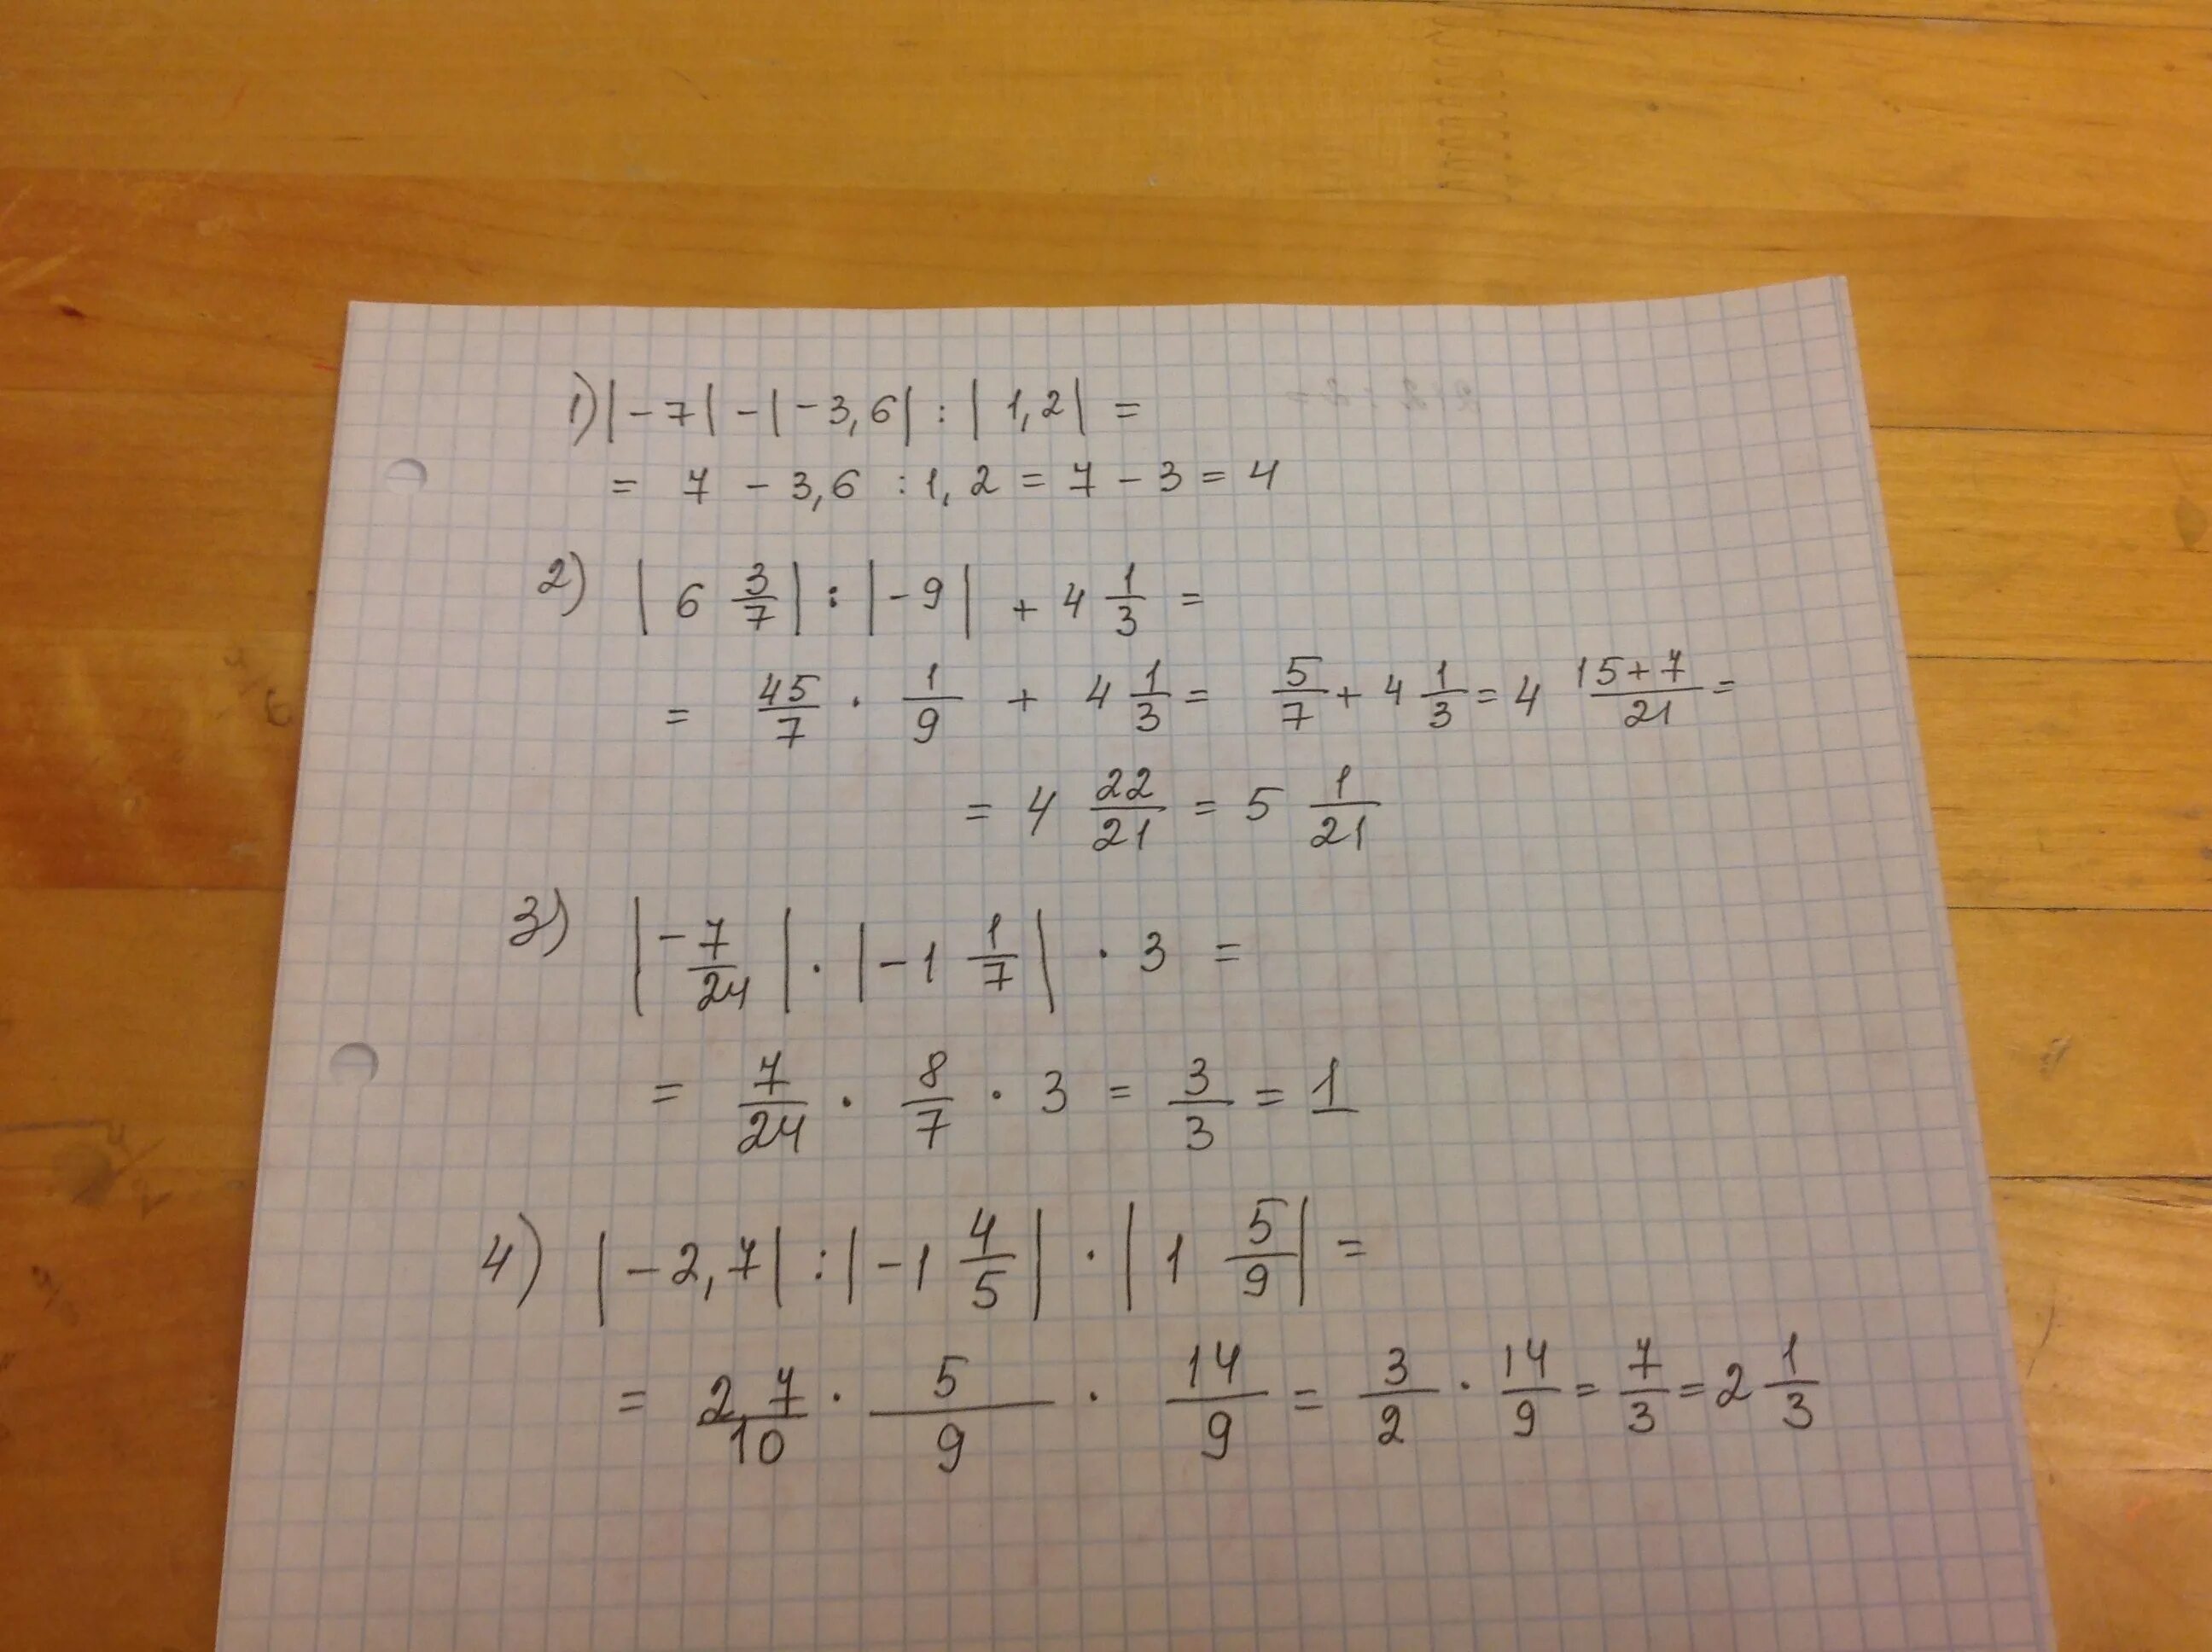 1) |-7| - |-3,6| : |1,2| =
= 7 - 3,6 : 1,2 = 7 - 3 = 4
2) |6 3/7| : |-9| + 4 1/3 =
= 45/7 · 1/9 + 4 1/3 = 5/7 + 4 1/3 = 4 15+7/21 =
= 4 22/21 = 5 1/21
3) |-7/24| · |-1 1/7| · 3 =
= 7/24 · 8/7 · 3 = 3/3 = 1
4) |-2,7| : |-1 4/5| · |1 5/9| =
= 27/10 · 5/9 · 14/9 = 3/2 · 14/9 = 7/3 = 2 1/3